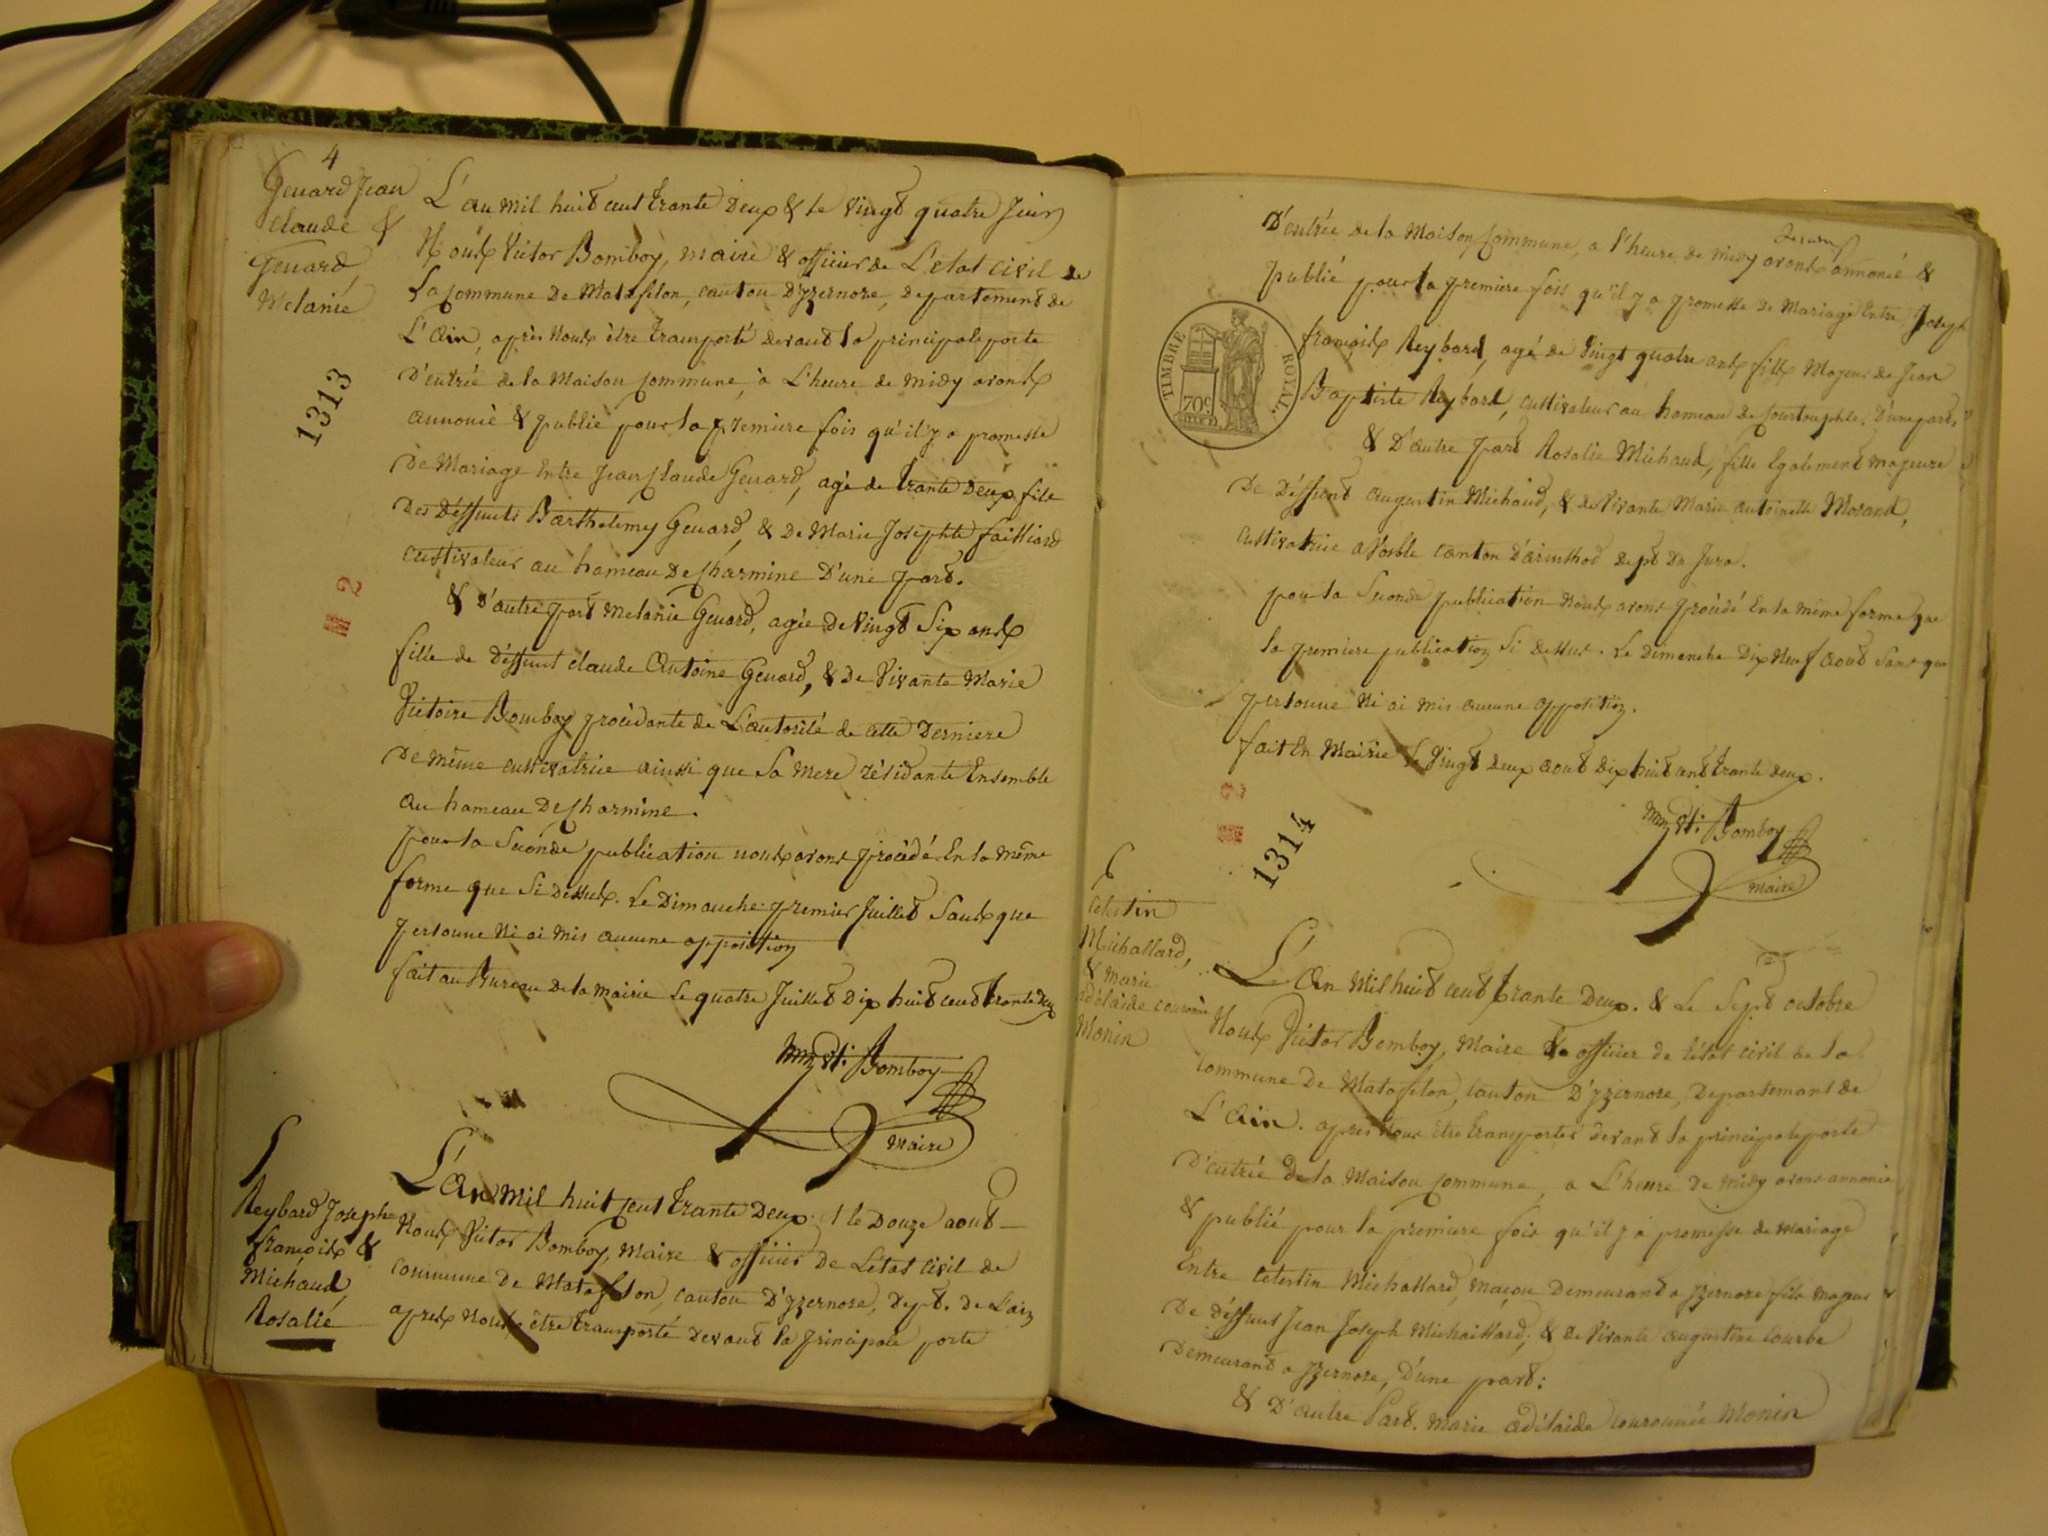 4
Genard Jean
Claude &
Genard,
Melanie
1313
M 2
L'an mil huit cent trante deux & le vingt quatre Juin
Nous Victor Bomboy, maire & officier de L'etat civil de
La commune de Matafelon, canton D'yzernore, departement de
L'Ain, après nous être transporté devant la principale porte
D'entrée de la Maison commune, à L'heure de midy avons
annoncé & publié pour la premiere fois qu'il y a promesse
De Mariage Entre Jean Claude Genard, agé de trante deux fils
Des déffunts Barthelemy Genard, & De Marie Josephte failliard
cultivateur au hameau De Charmine D'une part.
& D'autre part Melanie Genard, agée de vingt six ans
fille de déffunt claude Antoine Genard, & De vivante Marie
Victoire Bomboy procédante de L'autorité de cette Derniere
De même cultivatrice ainssi que Sa Mere résidante Ensemble
au hameau De Charmine.
pour la Séconde publication nous avons procédé En la même
forme que Si Dessus. Le Dimanche premier Juillet Sans que
personne ni ai mis aucune opposition
fait au Bureau de la mairie Le quatre Juillet Dix huit cent trante deux
Bomboy
maire
5
Reybard Josephe
françois &
Michaud,
Rosalie
L'An mil huit cent trante Deux & le Douze aout
Nous Victor Bomboy, Maire & officier De L'etat civil de
commune de Matafelon, canton D'yzernore, dept. de L'ain
après nous être transporté Devant la principale porte
D'entrée de la Maison Commune, a l'heure de midy avons annoncé &
publié pour la premiere fois qu'il y a promesse de Mariage Entre Joseph
TIMBRE ROYAL.
70c
françois Reybard, agé de vingt quatre ans fils Majeur de Jean
Baptiste Reybard, cultivateur au hameau de Courtouphle, D'une part,
& D'autre part Rosalie Michaud, fille Egalement majeure
De Déffunt augustin Michaud, & de vivante Marie antoinette Morand,
cultivatrice a Vosble canton D'arinthod dept Du Jura.
pour la Seconde publication nous avons procédé En la même forme que
la premiere publication Si dessus. Le dimanche Dix Neuf aout Sans que
personne Ni ai mis aucune opposition.
fait En Mairie Le vingt deux aout dix huit cent trante deux.
Bomboy
maire
M 2
1314
6
Celestin
Michallard,
& Marie
adélaide couronnée
Monin
L'An Mil huit cent trante Deux. & Le Sept octobre
Nous Victor Bomboy, Maire & officier de L'état civil de la
commune De Matafelon, canton D'yzernore, Departemant de
L'Ain. après Nous être transportés devant la principale porte
D'entrée de la Maison commune, a L'heure De midy avons annoncé
& publié pour la premiere fois qu'il y a promesse de mariage
Entre Celestin Michallard, maçon Demeurant a yzernore fils majeur
De déffunt Jean Joseph Michaillard, & de vivante augustine Courbe
Demeurant a yzernore, D'une part:
& D'autre Part. Marie adélaide couronnée Monin